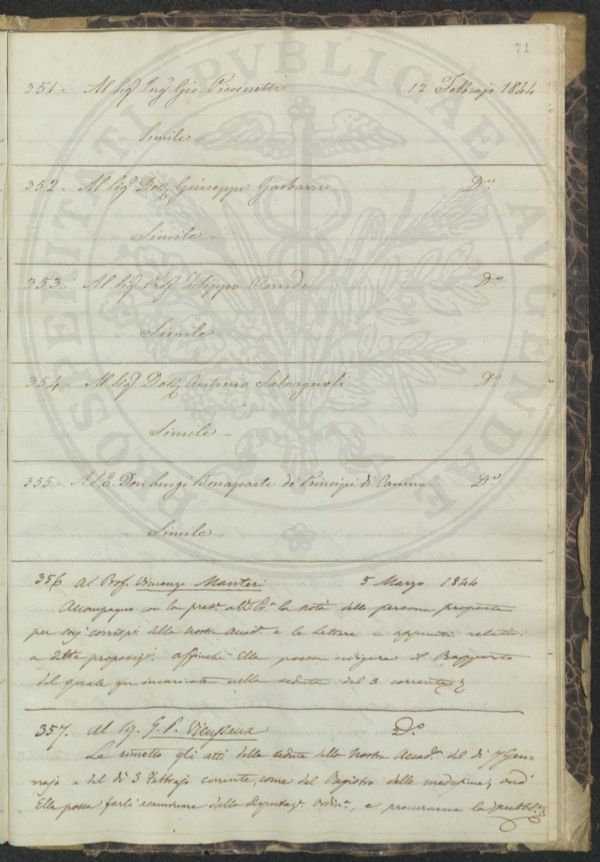 71
351. Al Sig. Ing. Gio. Piccinetti 12 Febbrajo 1844
Simile
352. Al Sig. Dott. Giuseppe Gasbarri D.o
Simile
353. Al Sig. Prof. Filippo Corridi D.o
Simile
354. Al Sig. Dott. Antonio Salvagnoli D.o
Simile
355. A S. E. Don Luigi Bonaparte de Principi di Canino D.o
Simile
356 Al Prof. Vincenzo Manteri 5 Marzo 1844
Accompagno con la pres. la nota delle persone proposte
per corrisp. della nostra Accad. e le Lettere e appunti relativi
a dette proposiz. affinché Ella possa redigere il Rapporto
del quale fu incaricato nella seduta del 3 corrente
357. Al Sig. G. P. Vieusseux D.o
Le rimetto gli atti delle sedute della Nostra Accad. del dì 7 Gen-
najo e del dì 3 Febbrajo corrente, come del Registro delle medesime, ond'
Ella possa farli esaminare dalla Deputaz. Ordin., e procurarne la pubbl.
PROSPERITATI PUBLICAE AUGENDAE